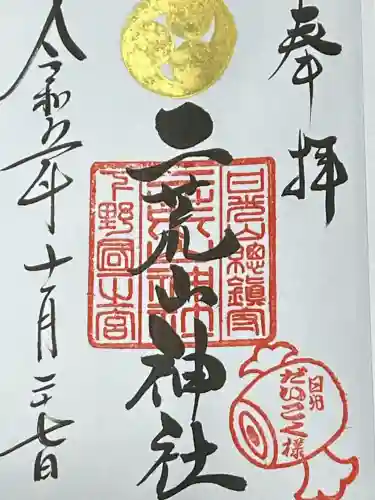 奉拝
二荒山神社
日光山總鎮守
下野國一宮
日光
だいこく様
令和五年十一月二十七日